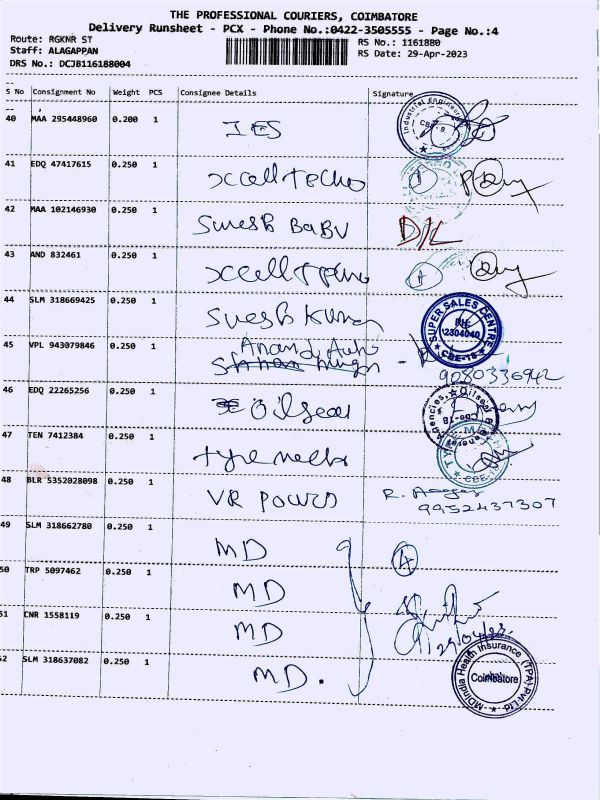 THE PROFESSIONAL COURIERS, COIMBATORE
Delivery Runsheet - PCX - Phone No.:0422-3505555 - Page No.:4
Route: RGKNR ST
RS No.: 1161880
Staff: ALAGAPPAN
RS Date: 29-Apr-2023
DRS No.: DCJB116188004
S No Consignment No Weight PCS Consignee Details Signature
40 MAA 295448960 0.200 1 IES
Industrial Engineer
CBE-9.
41 EDQ 47417615 0.250 1 xcell techno
42 MAA 102146930 0.250 1 Suresh BaBu D/C
43 AND 832461 0.250 1 xcell
44 SLM 318669425 0.250 1 Suresh Kumar
SUPER SALES CENTRE
PH:
2304040
CBE-18
45 VPL 943079846 0.250 1 Anand Auto
9080336942
46 EDQ 22265256 0.250 1 oilseal
Agencies, Oilseal
CBE-18
47 TEN 7412384 0.250 1
CBE-18
48 BLR 5352028098 0.250 1 VR POWER R.
9952437307
49 SLM 318662780 0.250 1 MD
50 TRP 5097462 0.250 1 MD
51 CNR 1558119 0.250 1 MD
29/04/23
52 SLM 318637082 0.250 1 MD.
MDIndia Health Insurance (TPA) Pvt. Ltd.
Coimbatore